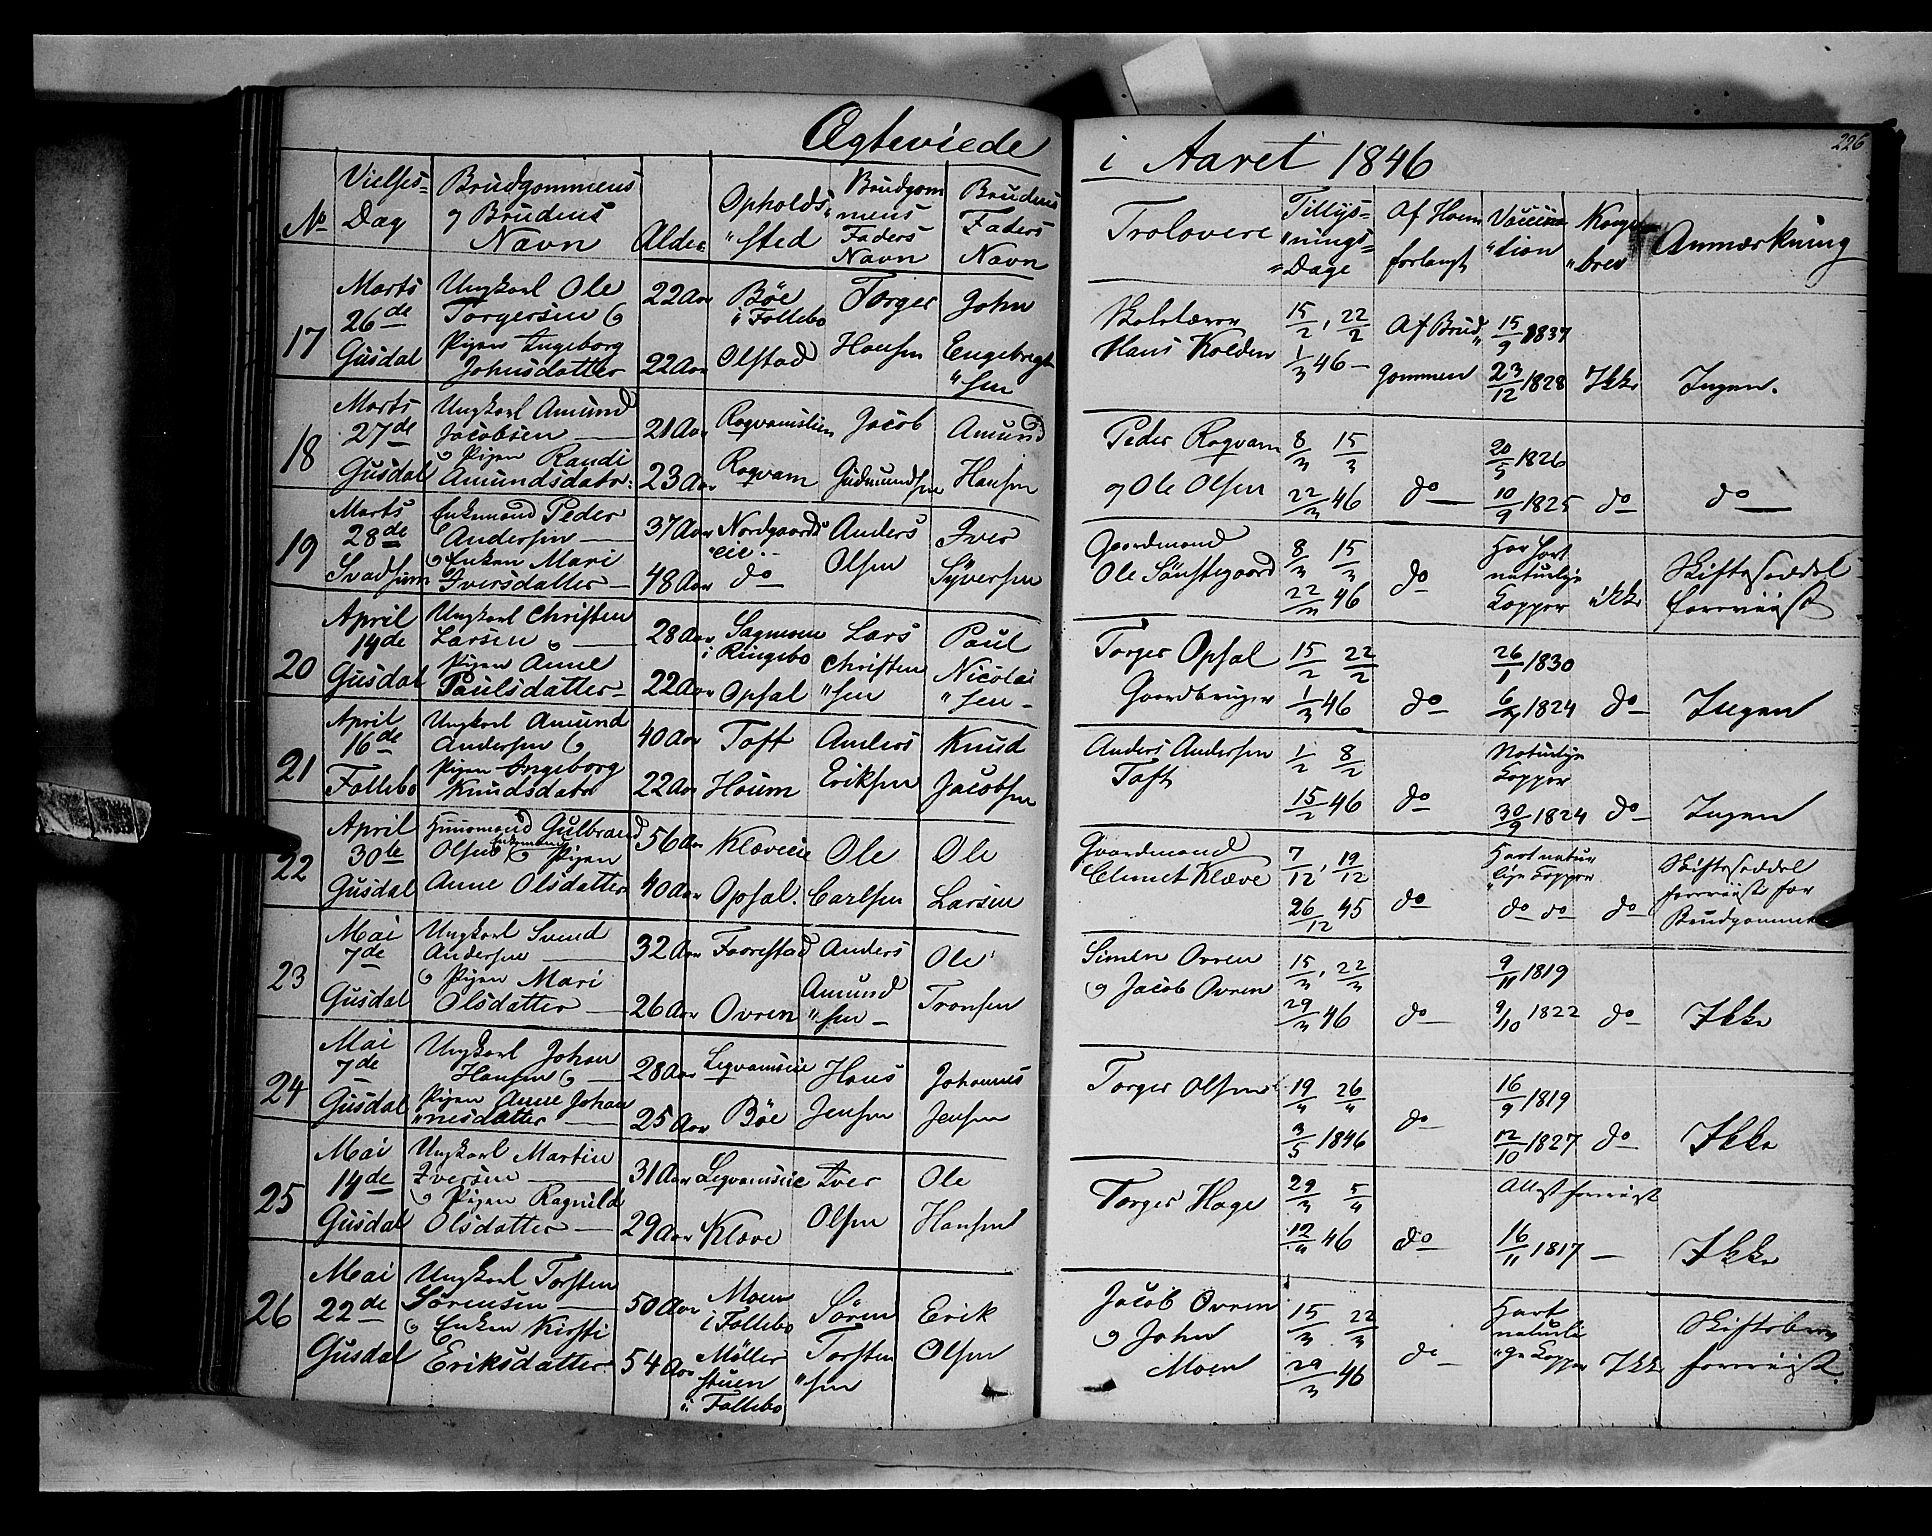 Ægteviede
i Aaret 1846
226
No
Vielses-
Dag
Brudgommens
og Brudens
Navn
Alder
Opholds-
"sted
Brudgom
mens
Faders
Navn
Brudens
Faders
Navn
Trolovere
Tillys-
"nings-
Dage
Af Hvem
forlangt
Vaccina
"tion
Konge
"brev
Anmærkning
17
Marts
26de
Gusdal
Ungkarl Ole
Torgersen og
Pigen Ingeborg
Johnsdatter
22 Aar
22 Aar
Bøe
i Follebo
Olstad
Torger
Hansen
John
Engebregt
"sen
Skolelærer
Hans Kolden
15/2, 22/2
1/3 46 –
Af Brud"
gommen
15/9 1837
23/12 1828
Ikke
Ingen.
18
Marts
27de
Gusdal
Ungkarl Amund
Jacobsen
og Pigen Randi
Amundsdatr:
21 Aar
23 Aar
Rogvamslien
Rogvam
Jacob
Gudmundsen
Amund
Hansen
Peder Rogvam
og Ole Olsen
8/3 15/3
22/3 46
do
20/5 1826
10/9 1825
do
do
19
Marts
28de
Svadsum
Enkemand Peder
Andersen
og Enken Mari
Iversdatter
37 Aar
48 Aar
Nordgaards
"eie.
do
Anders
Olsen
Iver
Syversen
Gaardmand
Ole Sønstegaard
8/3 15/3
22/3 46
do
Har havt
naturlige
Kopper
ikke
Skifteseddel
foreviist
20
April
14de
Gusdal
Ungkarl Christen
Larsen og
Pigen Anne
Paulsdatter
28 Aar
22 Aar
Sagmoen
i Ringebo
Opsal
Lars
Christen
"sen
Paul
Nicolai
"sen
Torger Opsal
Gaardbruger
15/2 22/2
1/3 46
do
26/1 1830
1824
do
Ingen
21
April
16de
Follebo
Ungkarl Amund
Andersen og
Pigen Ingeborg
Knudsdatr
40 Aar
22 Aar
Toft
Houm
Anders
Eriksen
Knud
Jacobsen
Anders Andersen
Toft
1/2 8/2
15/2 46
do
Naturlige
Kopper
30/9 1824
do
Ingen
22
April
30te
Gusdal
Huusmand Gulbrand
Olsen Enkemand og Pigen
Anne Olsdatter
56 Aar
40 Aar
Klæveeie
Opsal.
Ole
Carlsen
Ole
Larsen
Gaardmand
Clemet Klæve
7/12, 19/12
26/12 45
do
Havt natur
"lige Kopper
do do
do
Skifteseddel
foreviist for
Brudgommen
23
Mai
7de
Gusdal
Ungkarl Svend
Andersen
og Pigen Mari
Olsdatter
32 Aar
26 Aar
Faarestad
Ovren
Anders
Amund
"sen
Ole
Tronsen
Simen Ovren
og Jacob Ovren
15/3, 22/3
29/3 46
do
9/11 1819
9/10 1822
do
Ikke
24
Mai
7de
Gusdal
Ungkarl Johan
Hansen og
Pigen Anne Johan
"nesdatter
28 Aar
25 Aar
Legvamseie
Bøe
Hans
Jensen
Johannes
Jensen
Torger Olsen
19/4 26/4
3/5 1846
do
16/9 1819
12/10 1827
do
Ikke
25
Mai
14de
Gusdal
Ungkarl Martin
Iversen
og Pigen Ragnild
Olsdatter
31 Aar
29 Aar
Legvamseie
Klæve
Iver
Olsen
Ole
Hansen
Torger Hage
29/3 5/4
12/4 46
do
Attest foreviist
16/11 1817
–
Ikke
26
Mai
22de
Gusdal
Ungkarl Torsten
Sørensen
og Enken Kirsti
Eriksdatter
50 Aar
54 Aar
Moen
i Follebo
Møller
stuen
i Follebo
Søren
Torsten
"sen
Erik
Olsen
Jacob Ovren
og John
Moen
15/3 22/3
29/3 46
do
Havt
naturli
"ge Kopper
Ikke
Skiftebrev
foreviist.